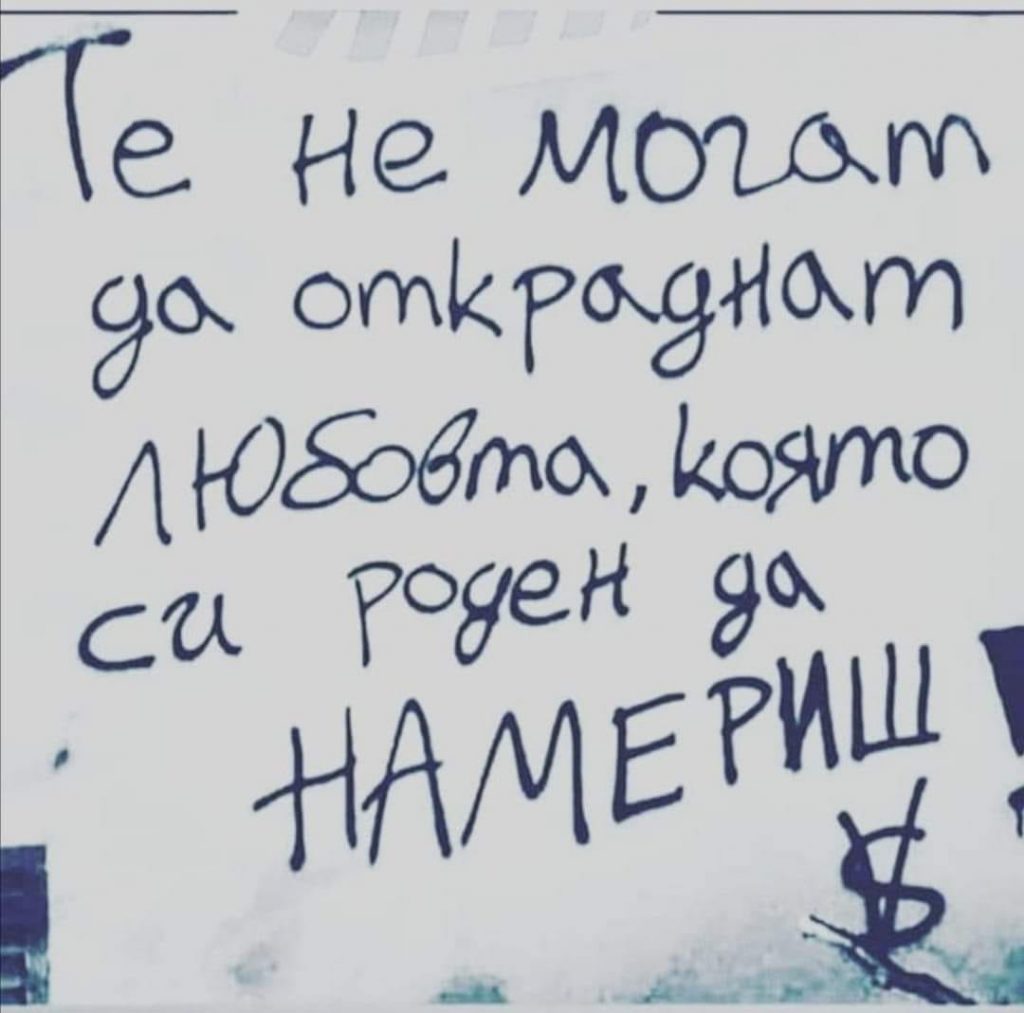 Те не могат
да откраднат
любовта, която
си роден да
НАМЕРИШ